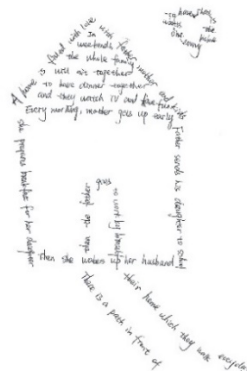 A home is found with love with father, mother and
In
weekends
the whole family
is will sit together
to have dinner together
and they watch TV and
Every morning, mother gets up early
she prepares breakfast for her daughter
then she wakes up her husband
Father sends his daughter to school
then the father goes
to work by himself
There is a path in front of
their home which they walk everyday